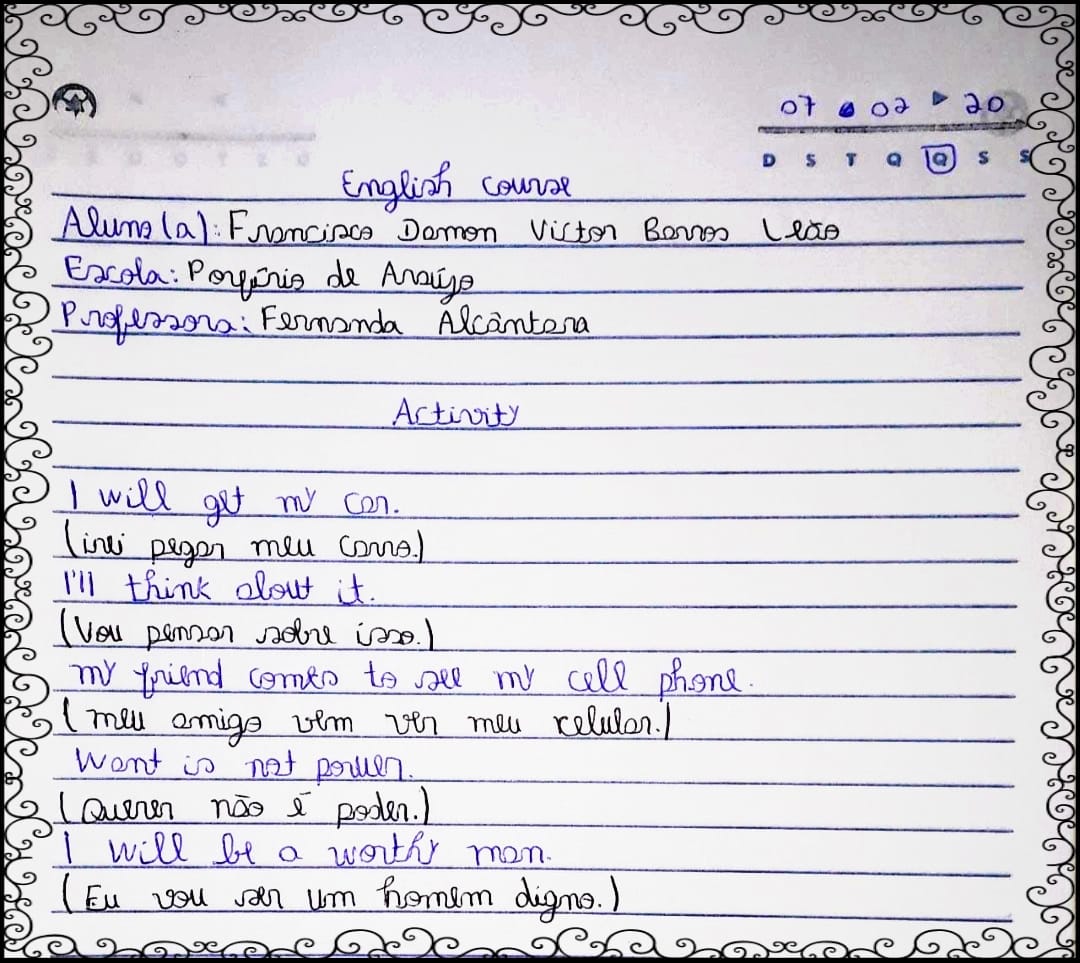 07 02 20
D S T Q Q S S
English course
Aluno(a): Francisco Damon Victor Barros Leão
Escola: Porfírio de Araújo
Professora: Fernanda Alcântara
Activity
I will get my car.
(irei pegar meu carro.)
I'll think about it.
(Vou pensar sobre isso.)
my friend comes to see my cell phone.
(meu amigo vem ver meu celular.)
Want is not power.
(Querer não é poder.)
I will be a worthy man.
(Eu vou ser um homem digno.)